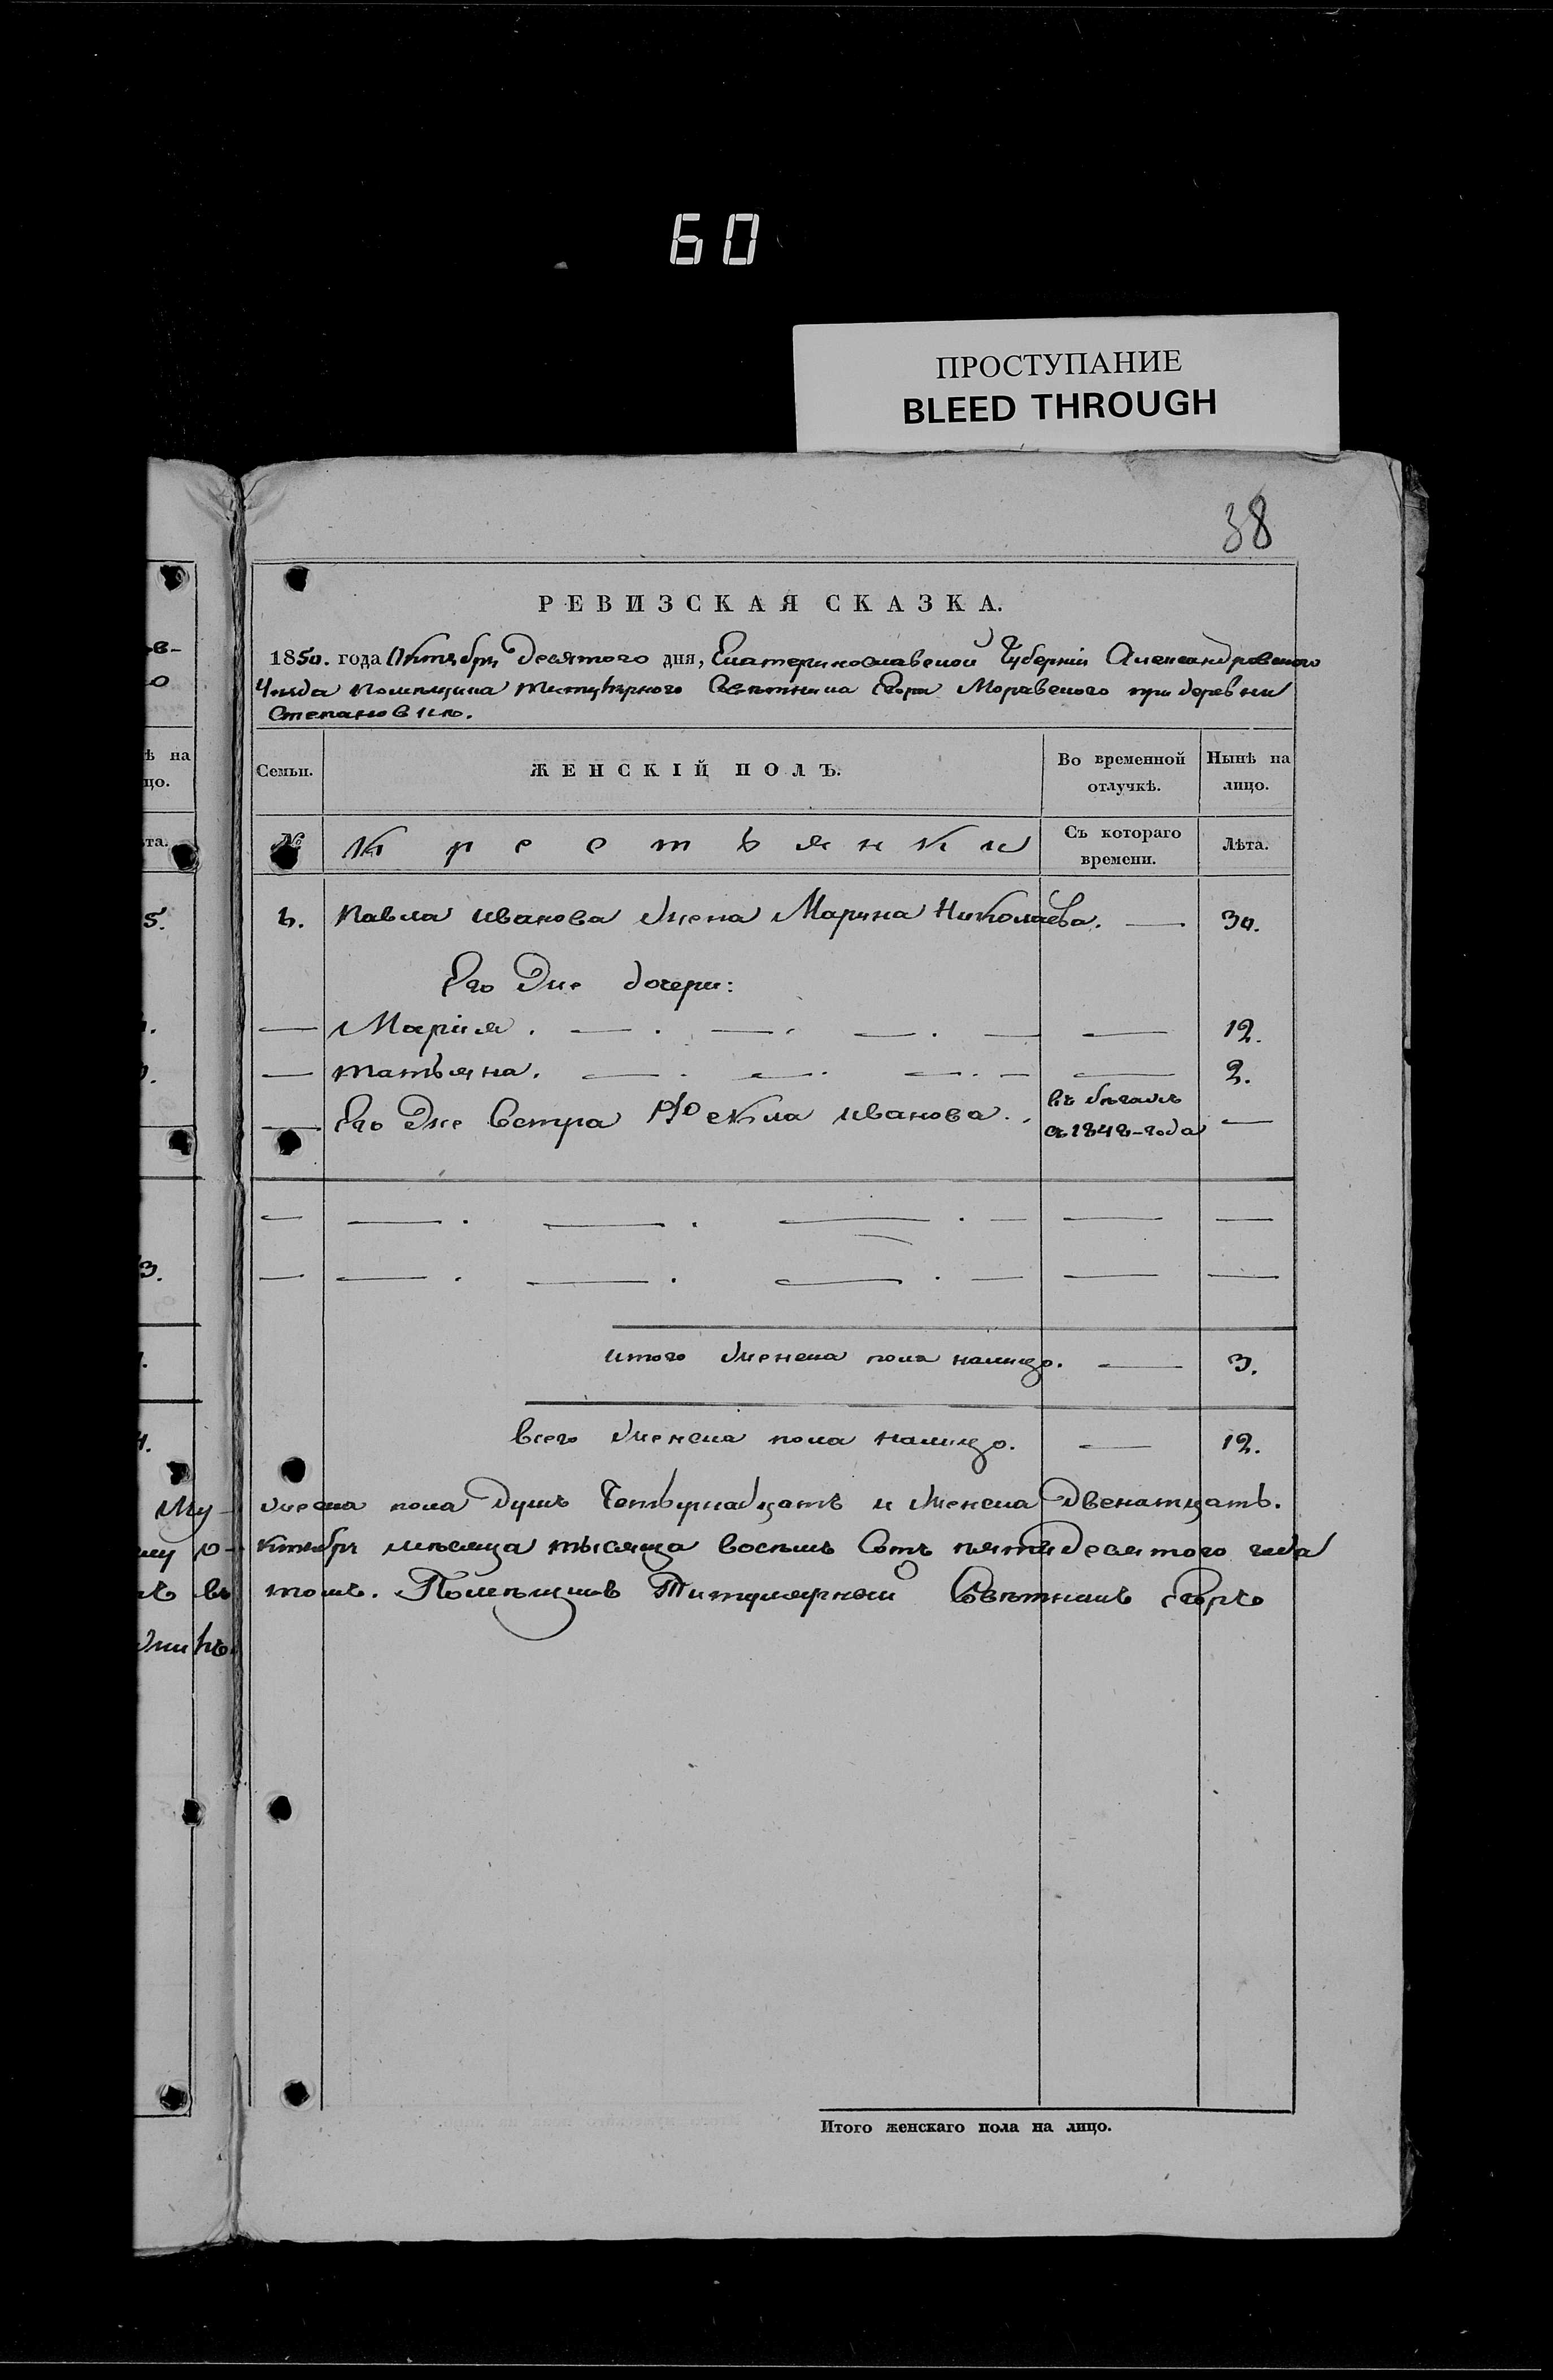 60
ПРОСТУПАНИЕ
BLEED THROUGH
38
РЕВИЗСКАЯ СКАЗКА.
1850. года Октября десятого дня, Екатеринославской Губерніи Александровского
Уезда помещика титулярного Советника Егора Моравского при деревни
Степановки.
Семьи.
ЖЕНСКІЙ ПОЛЪ.
Во временной отлучкѣ.
Нынѣ на лицо.
№
Крестьянки
Съ котораго времени.
Лѣта.
Павла Иванова жена Марина Николаева. — 30.
Его же дочери:
— Марія. — . — . — . — — 12.
— Татьяна. — . — . — . — — 2.
— Его же Сестра Фекла Иванова. въ бѣгахъ —
съ 1848-года
итого женска пола налицо. — 3.
всего женска пола налицо. — 12.
жеска пола душъ Четырнадцать и женска двенатцать.
ктября мѣсяца тысяща восемь Сотъ пятидесятого года
томъ. Помѣщикъ Титулярный Совѣтникъ Егоръ
Итого женскаго пола на лицо.
ѣ на
цо.
ѣта.
5.
3.
Му-